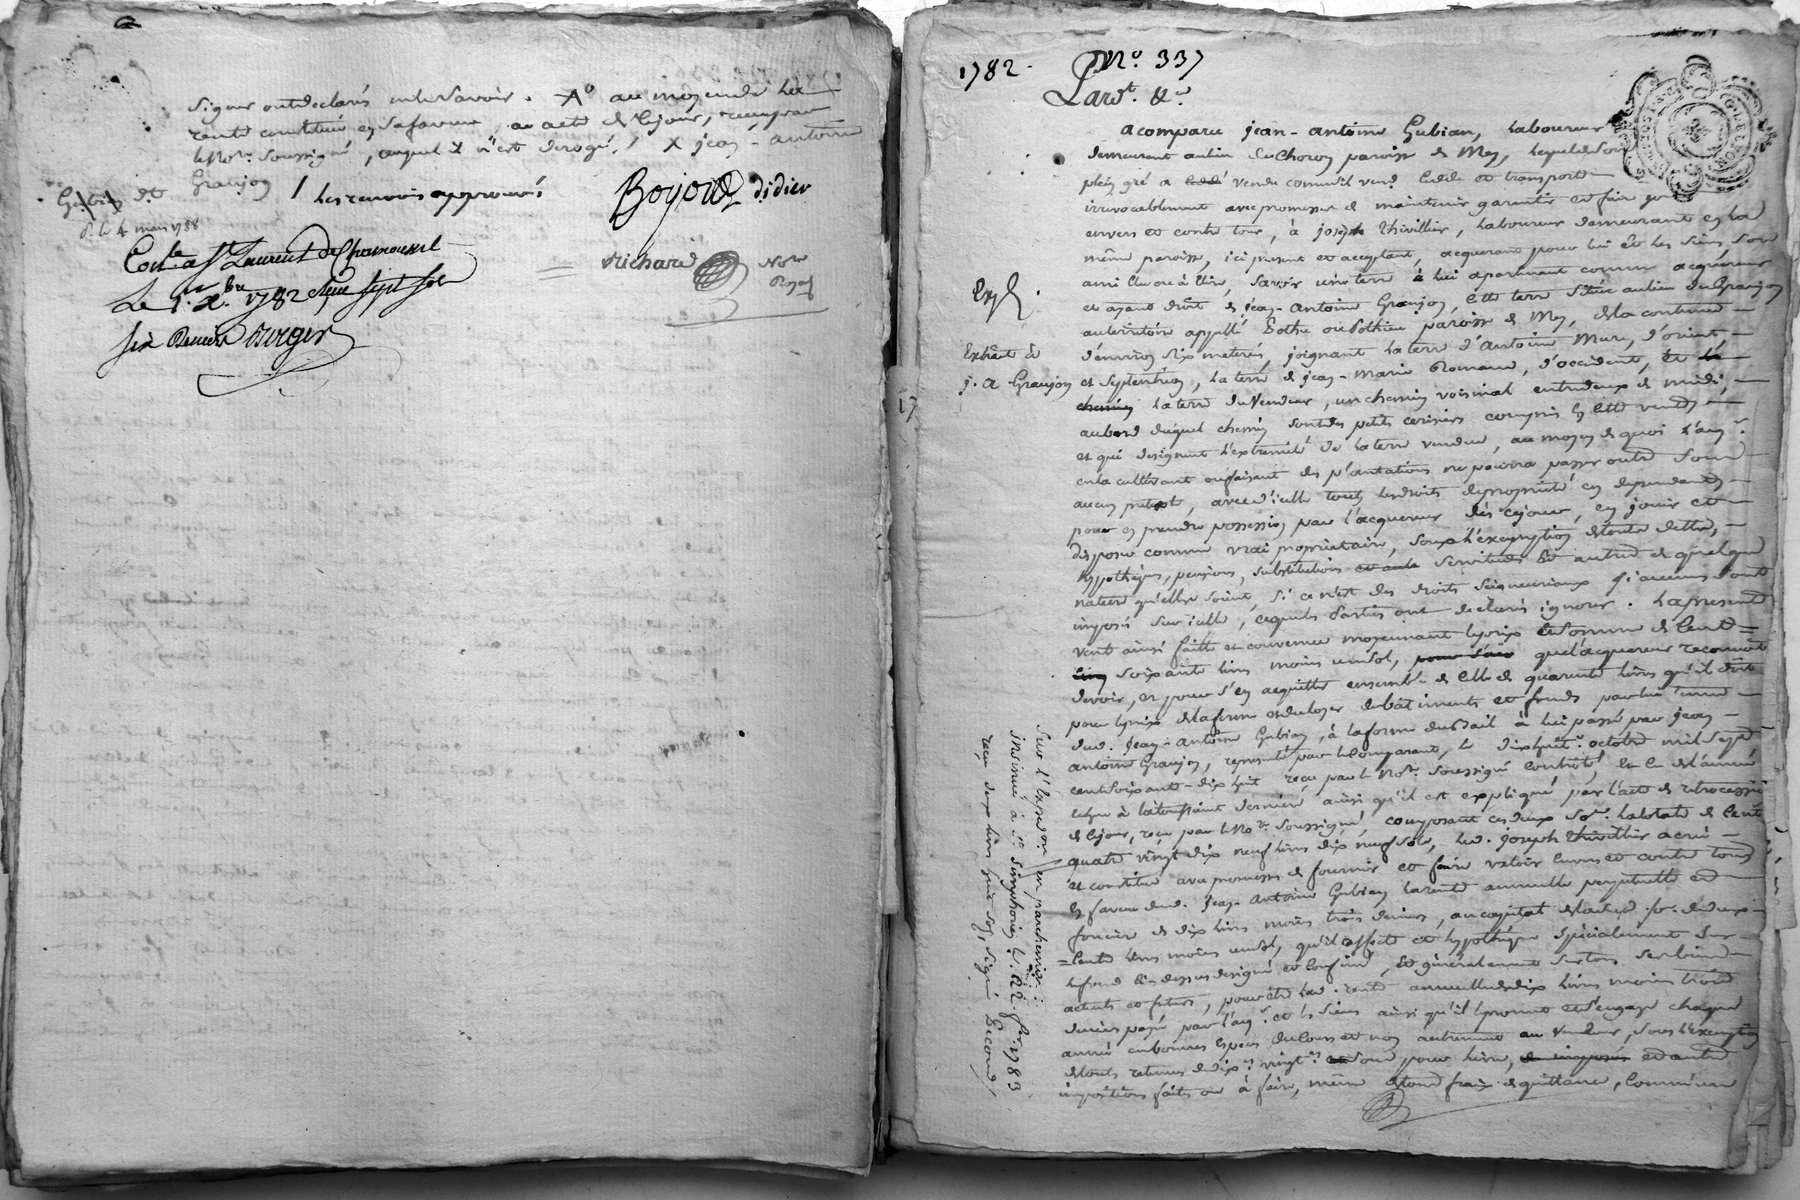 signer ont declarés ne le savoir. au moyen de la
rente constituée en sa faveur, au acte de ce jour, reçu par
le No.re soussigné, auquel il n'est derogé. / X jean-antoine
Granjon / les renvois approuvés
Boyord didier
d. le 4 mars 1788
Con.lé a S.t Laurent de Chamousset
Le 1.er X.bre 1782 Reçu sept sols
six Deniers Berger
Richard No.re Royal
1782. N.o 337
Pard.t &c.
a comparu jean-antoine Gubian, laboureur
demeurant au lieu du Choron paroisse de Mey, lequel de son
plein gré a vendu comme il vend cede et transporte
irrevocablement avec promesse de maintenir garantir et faire jouir
envers et contre tous, à joseph thivillier, laboureur demeurant en la
même paroisse, ici present et acceptant, acquerant pour lui et les siens, son
ami elu ou à elire, savoir une terre à lui apartenant comme acquereur
et ayant droit de jean-antoine Granjon, cette terre située au lieu du Granjon
au territoire appellé Sothe ou Sothieu paroisse de Mey, de la contenue
d'environ six meterés, joignant la terre d'antoine Mure, d'orient
et septentrion, la terre de jean-marie Romand, d'occident, et la
chemin la terre du Vendeur, un chemin voisinal entredeux de midi,
au bord duquel chemin sont des petits cerisiers compris en cette vente
et qui designent l'extremité de la terre vendue, au moyen de quoi l'aq.r
en la cultivant ou faisant des plantations ne pourra passer outre sous
aucun pretexte, avec d'icelle tous les droits de propriété en dependants
pour en prendre possession par l'acquereur dès ce jour, en jouir et
disposer comme vrai proprietaire, sous l'exemption de toute dette,
hypothèques, pensions, substitutions servitudes et autres de quelque
nature qu'elles soient, si ce n'est des droits seigneuriaux si aucuns sont
imposés sur icelle, ce que les parties ont declaré ignorer. La presente
vente ainsi faitte et convenue moyennant le prix et somme de Cent
soixante livres moins un sol, que l'acquereur reconnoit
devoir, et pour s'en acquitter ensemble de celle de quarante livres qu'il doit
pour le prix de la ferme et du loyer de bâtiments et fonds par lui tenue
dud. jean-antoine Gubian, à la forme du bail à lui passé par jean-
antoine Granjon, representé par le comparant, le dixhuit octobre mil sept
cent soixante-dix huit reçu par le No.re soussigné controlé le de l'année
echue à la toussaint derniere ainsi qu'il est expliqué par l'acte de retrocession
de ce jour, reçu par le No.re soussigné, composant ces deux som.es la totale de Cent
quatre vingt dix neuf livres dix neuf sols, led. joseph thivillier a créé
et constitué avec promesse de fournir et faire valoir envers et contre tous
en faveur dud. jean-antoine Gubian la rente annuelle perpetuelle et
fonciere de dix livres moins trois deniers, au capital de lad. som. de deux
cents livres moins un sol, qu'il affecte et hypotheque specialement sur
le fond ci-dessus designé et confiné, et generalement sur tous ses biens
actuels et futurs, pour être lad. rente annuelle de dix livres moins trois
deniers payée par l'aq.r et les siens ainsi qu'il le promet et s'engage chaque
année en bonnes especes de cours et non autrement au Vendeur, sous l'exemption
de toutes retenues de dix.es vingt.es et sous pour livre, et autres
impositions faites ou à faire, même de tous frais de quittance, comme une
Exp.
Extrait à
j. a Granjon
Sur l'Expedition en parchemin:
insinué à S.t Simphorien le 1783
reçu deux livres huit sols, signé Decond,